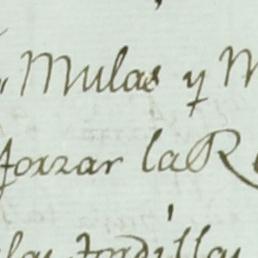 Mulas y M
forzar la R
las Tordillas